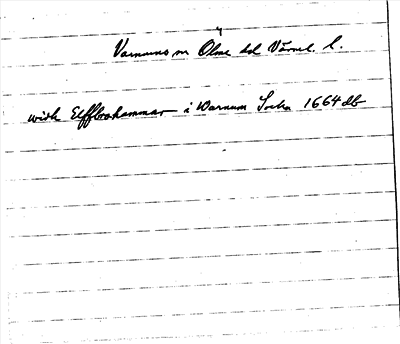 Varnums sn Ölme hd Värml. l.
widh Elffbrohammar i Warnum Sochn 1664 db